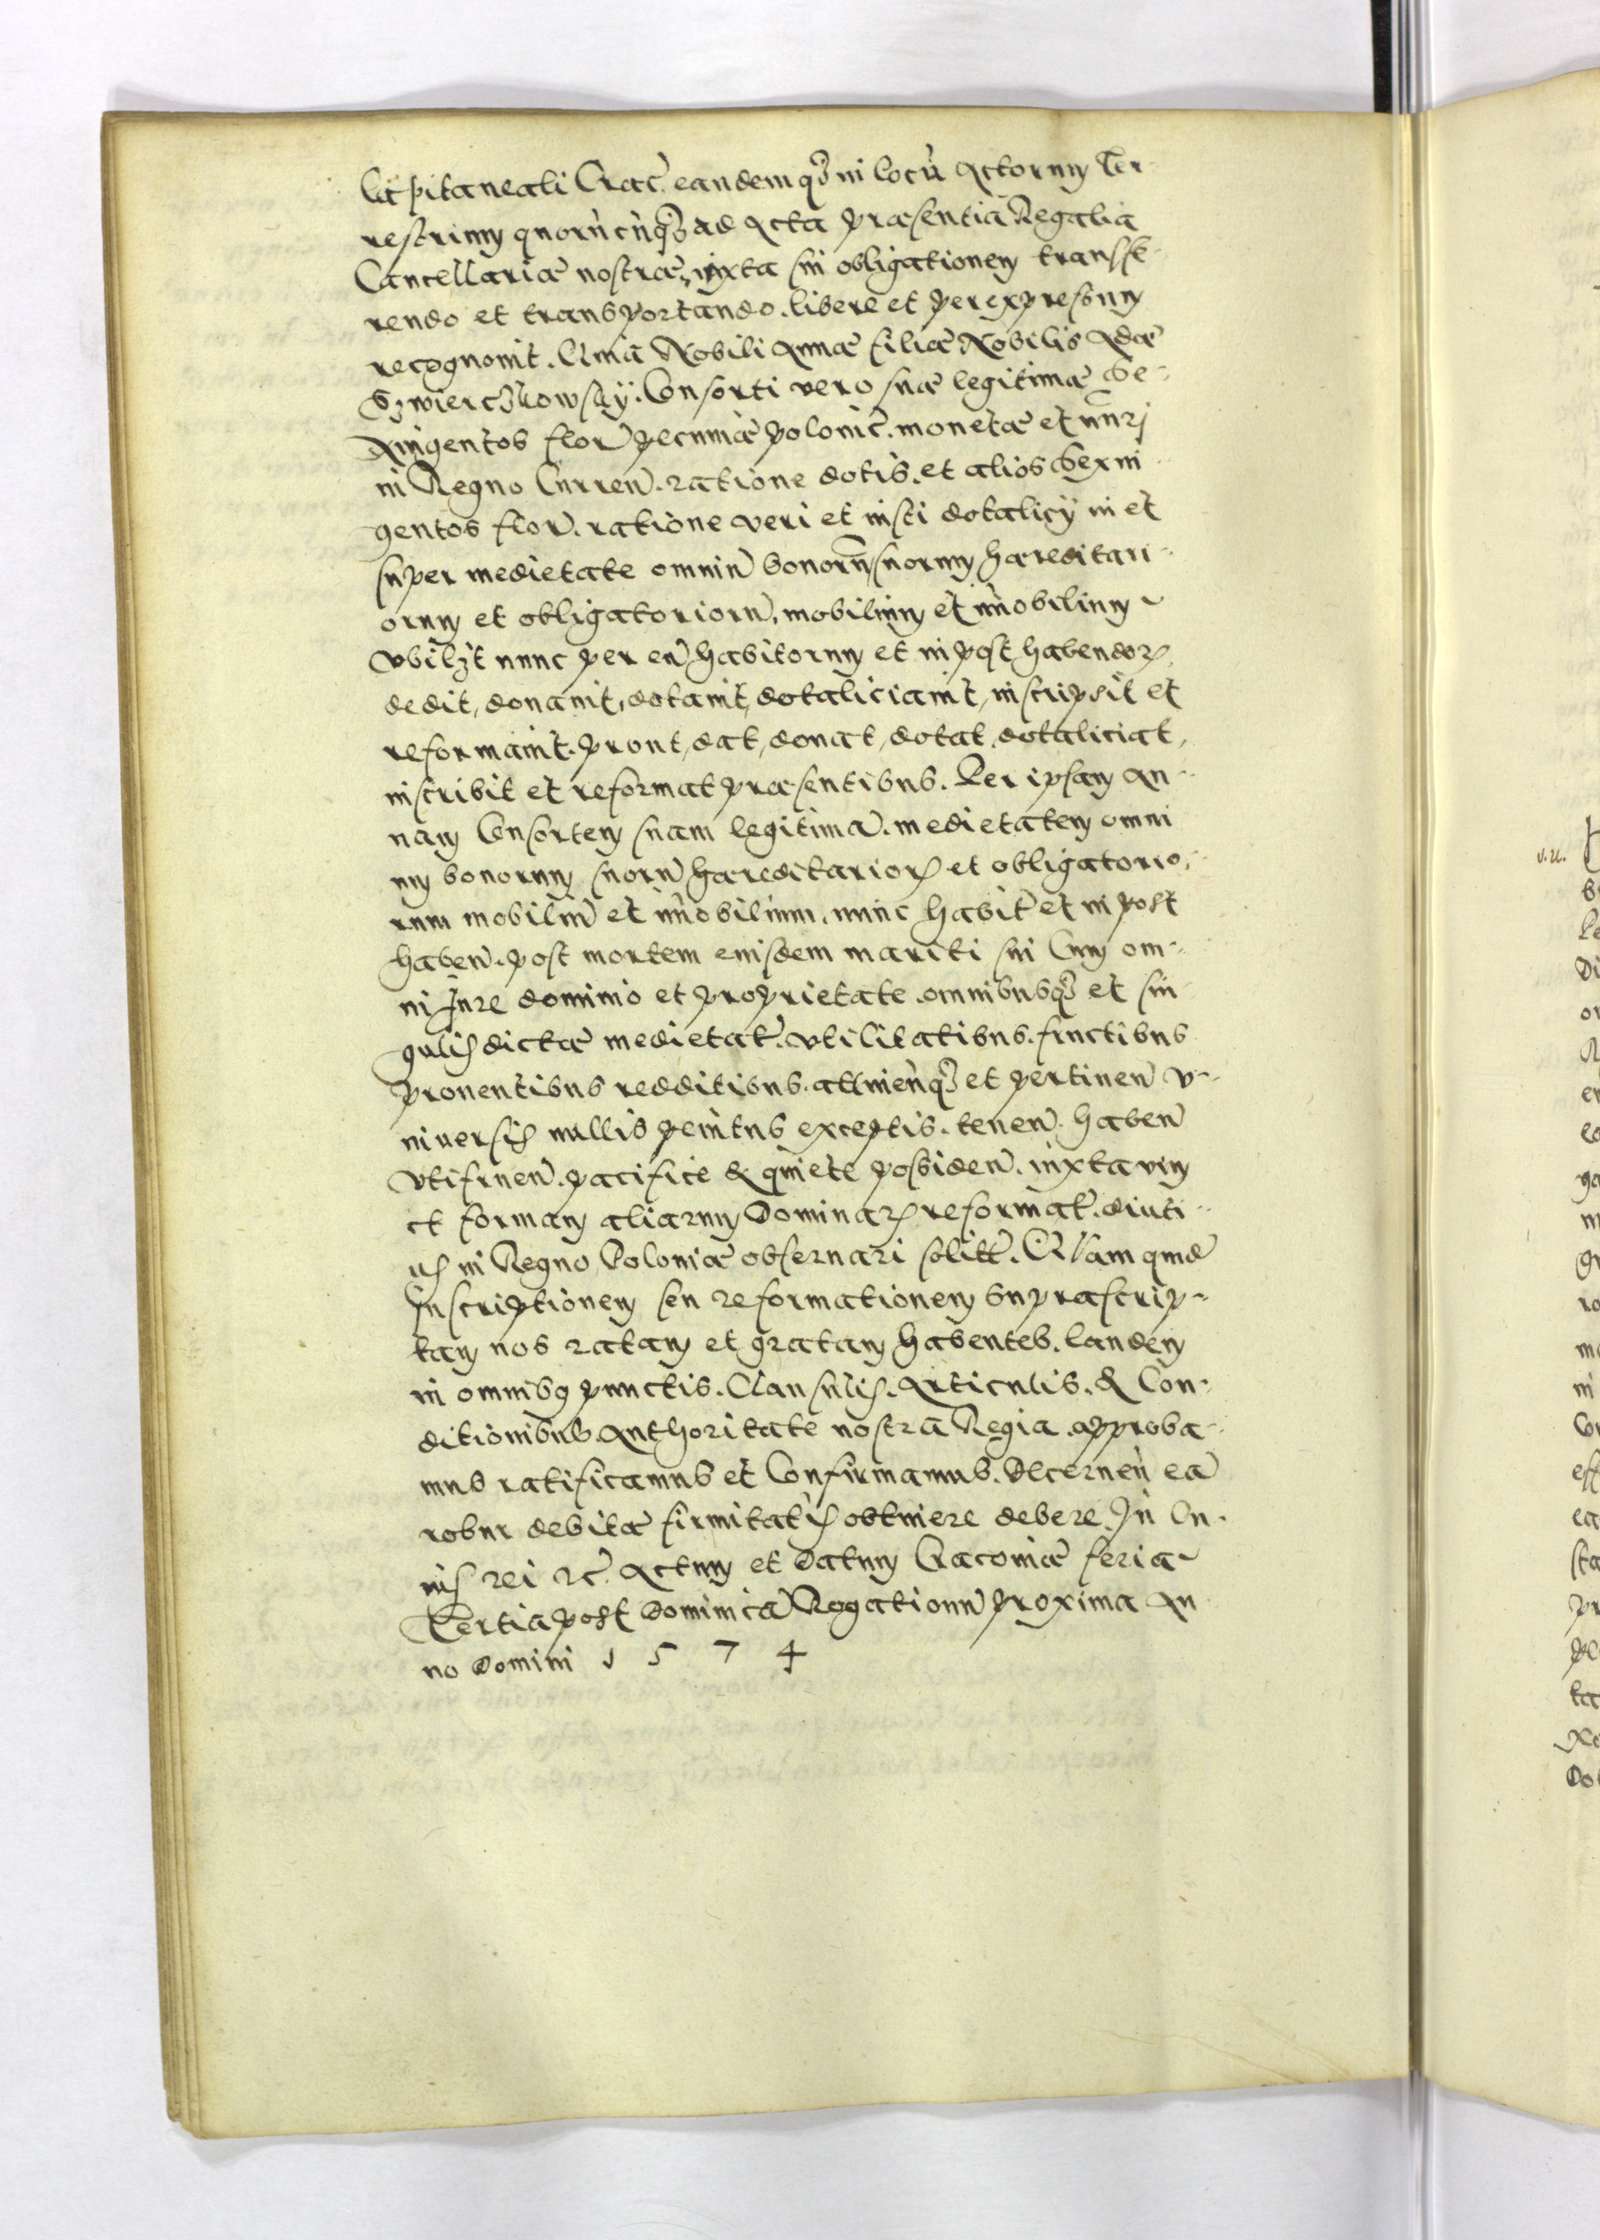 Capitaneali Crac. eandemq3 in locu Actorum Ter-
restrium quorucuq3 ad Acta præsentia Regalia
Cancellariæ nostræ, iuxta sui obligationem transfe-
rendo et transportando. libere et per expressum
recognouit. Nobili Annæ filiæ Nobilis Adæ
Consorti vero suæ legitimæ Se-
xingentos flor pecuniæ polonic. monetæ et nuri
in Regno Curren. ratione dotis. et alios Sexin
gentos flor. ratione veri et iusti dotalicÿ in et
super medietate omniu bonoru suorum hæreditari-
orum et obligatorioru, mobilium et imobilium
vbilzt nunc per eu habitorum et in post habendor
dedit, donauit, dotauit, dotaliciauit, inscripsit et
reformauit. prout, dat, donat, dotat, dotaliciat,
inscribit et reformat præsentibus. Per ipsam An-
nam Consortem suam legitima. medietatem omni
um bonorum suoru hæreditarior et obligatorio,
rum mobiliu et imobilium. nunc habit et in post
haben. post mortem eiusdem mariti sui Cum om-
ni Jure dominio et proprietate. omnibusq3 et sin
gulis dictæ medietat. vtilitatibus. fructibus
prouentibus redditibus. attinenq3 et pertinen v-
niuersis nullis penitus exceptis. tenen. haben
vtifruen. pacifice & quiete possiden. iuxta vim
et formam aliarum Dominar reformat. diuti-
us in Regno Poloniæ obseruari solit. Quam quidē
Inscriptionem seu reformationem supræscrip-
tam nos ratam et gratam habentes. eandem
in omnibq punctis. Clausulis. Articulis. & Con-
ditionibus Authoritate nostra Regia approba-
mus ratificamus et Confirmamus. Decernen ea
robur debitæ firmitatis obtinere debere. In Cu-
ius rei &c. Actum et Datum Cracouiæ feria
Tertia post Dominica Rogationu proxima An
no Domini 1574
v. u.